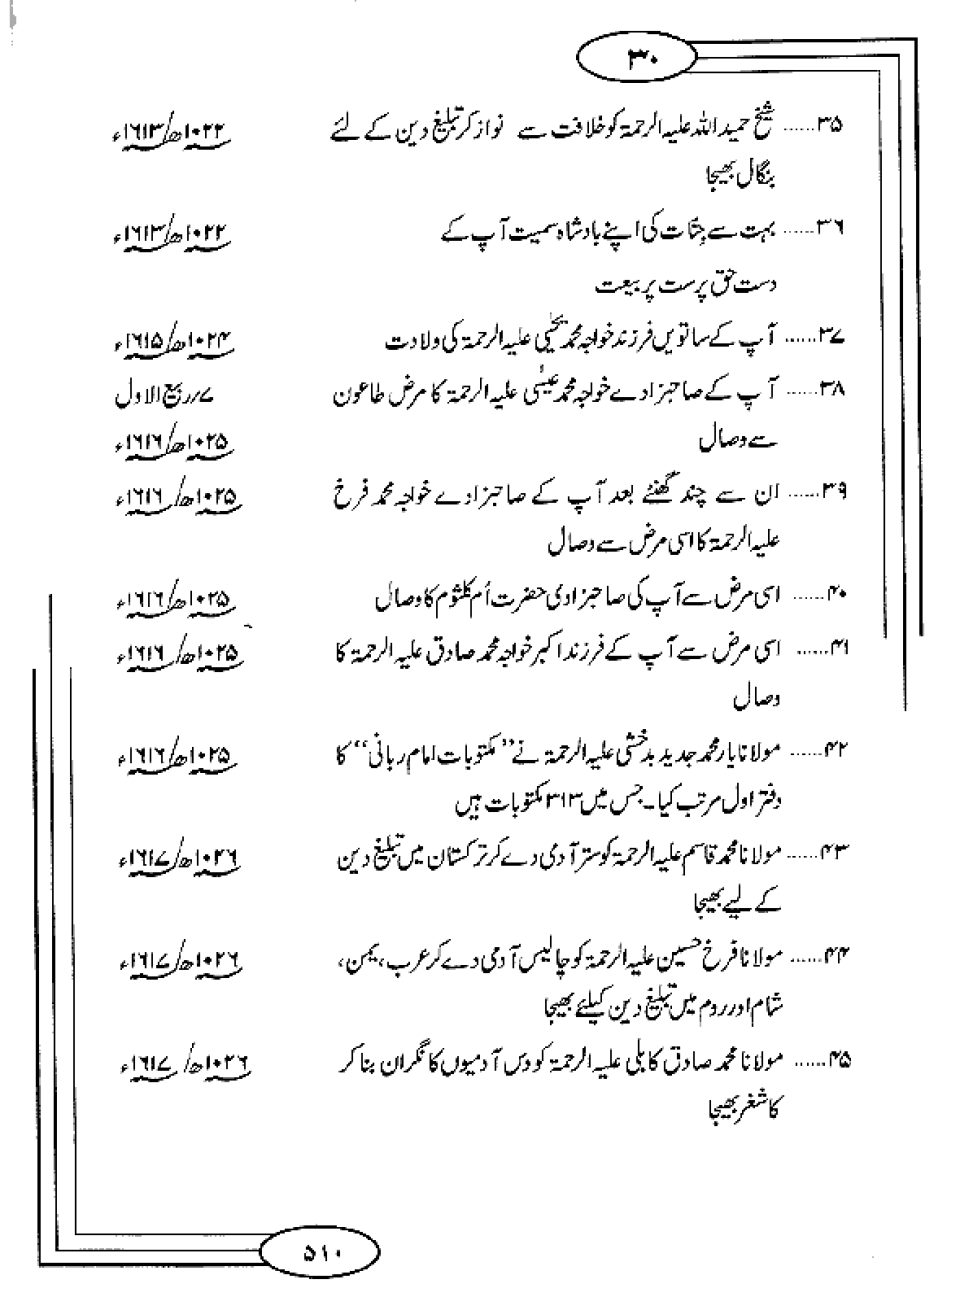 ۳۰
۳۵...... شیخ حمید اللہ علیہ الرحمۃ کو خلافت سے نواز کر تبلیغ دین کے لئے ۱۰۲۲ھ/۱۶۱۳ء
بنگال بھیجا
۳۶...... بہت سے جِنّات کی اپنے بادشاہ سمیت آپ کے ۱۰۲۲ھ/۱۶۱۳ء
دست حق پرست پر بیعت
۳۷...... آپ کے ساتویں فرزند خواجہ محمد یحیٰی علیہ الرحمۃ کی ولادت ۱۰۲۴ھ/۱۶۱۵ء
۳۸...... آپ کے صاحبزادے خواجہ محمد عیسٰی علیہ الرحمۃ کا مرض طاعون ۷/ربیع الاول
سے وصال ۱۰۲۵ھ/۱۶۱۶ء
۳۹...... ان سے چند گھنٹے بعد آپ کے صاحبزادے خواجہ محمد فرخ ۱۰۲۵ھ/۱۶۱۶ء
علیہ الرحمۃ کا اسی مرض سے وصال
۴۰...... اسی مرض سے آپ کی صاحبزادی حضرت اُم کلثوم کا وصال ۱۰۲۵ھ/۱۶۱۶ء
۴۱...... اسی مرض سے آپ کے فرزند اکبر خواجہ محمد صادق علیہ الرحمۃ کا ۱۰۲۵ھ/۱۶۱۶ء
وصال
۴۲...... مولانا یار محمد جدید بدخشی علیہ الرحمۃ نے ”مکتوبات امام ربانی“ کا ۱۰۲۵ھ/۱۶۱۶ء
دفتر اول مرتب کیا۔ جس میں ۳۱۳ مکتوبات ہیں
۴۳...... مولانا محمد قاسم علیہ الرحمۃ کو ستر آدمی دے کر ترکستان میں تبلیغ دین ۱۰۲۶ھ/۱۶۱۷ء
کے لیے بھیجا
۴۴...... مولانا فرخ حسین علیہ الرحمۃ کو چالیس آدمی دے کر عرب، یمن، ۱۰۲۶ھ/۱۶۱۷ء
شام اور روم میں تبلیغ دین کیلئے بھیجا
۴۵...... مولانا محمد صادق کابلی علیہ الرحمۃ کو دس آدمیوں کا نگران بنا کر ۱۰۲۶ھ/۱۶۱۷ء
کاشغر بھیجا
۵۱۰